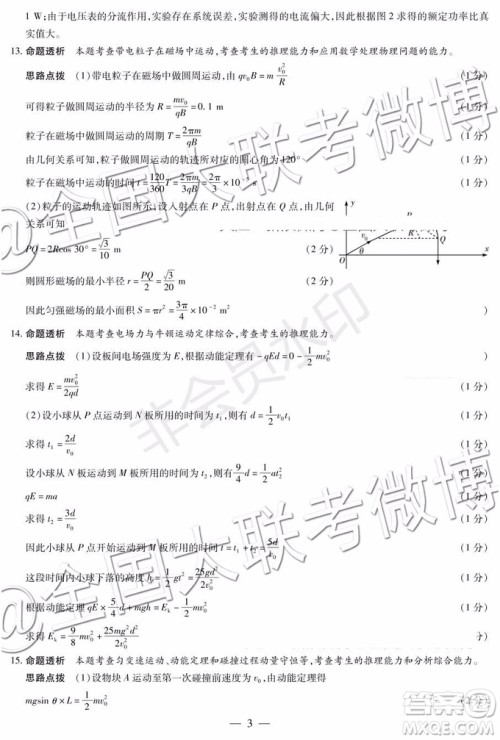 1 W;由于电压表的分流作用,实验存在系统误差,实验测得的电流偏大,因此根据图 2 求得的额定功率比真
实值大。
13. 命题透析 本题考查带电粒子在磁场中运动,考查考生的推理能力和应用数学处理物理问题的能力。
思路点拨 (1)带电粒子在磁场中做圆周运动,由 qv₀B = m v₀²/R (1 分)
可得粒子做圆周运动的半径为 R = mv₀/qB = 0.1 m (1 分)
粒子在磁场中做圆周运动的周期 T = 2πm/qB (1 分)
由几何关系可知,粒子做圆周运动的轨迹所对应的圆心角为 120° (1 分)
粒子在磁场中运动的时间 t = 120/360 T = 2πm/3qB = 2π/3 × 10⁻⁵ s (1 分)
(2)粒子的运动轨迹如图所示,设入射点在 P 点,出射点在 Q 点,由几何
关系可知
PQ = 2Rcos 30° = √3/10 m (2 分)
则圆形磁场的最小半径 r = PQ/2 = √3/20 m (2 分)
因此匀强磁场的最小面积 S = πr² = 3π/4 × 10⁻² m² (1 分)
y
R
Q
θ
O
x
14. 命题透析 本题考查电场力与牛顿运动定律综合,考查考生的推理能力。
思路点拨 (1)设板间电场强度为 E,根据动能定理有 −qEd = 0 − 1/2 mv₀² (1 分)
求得 E = mv₀²/2qd (1 分)
(2)设小球从 P 点运动到 N 板所用的时间为 t₁,则有 d = 1/2 v₀t₁ (1 分)
求得 t₁ = 2d/v₀ (1 分)
设小球从 N 板运动到 M 板所用的时间为 t₂,则有 9/4 d = 1/2 at₂² (1 分)
qE = ma (1 分)
求得 t₂ = 3d/v₀ (1 分)
因此小球从 P 点开始运动到 M 板所用的时间 t = t₁ + t₂ = 5d/v₀ (1 分)
这段时间内小球下落的高度 h = 1/2 gt² = 25gd²/2v₀² (1 分)
根据动能定理 qE × 5/4 d + mgh = Eₖ − 1/2 mv₀² (1 分)
求得 Eₖ = 9/8 mv₀² + 25mg²d²/2v₀² (1 分)
15. 命题透析 本题考查匀变速运动、动能定理和碰撞过程动量守恒等,考查考生的推理能力和分析综合能力。
思路点拨 (1)设物块 A 运动至第一次碰撞前速度为 v₀,由动能定理得
mgsin θ × L = 1/2 mv₀²
— 3 —
@全国大联考微博
@全国大联考微博
非会员水印